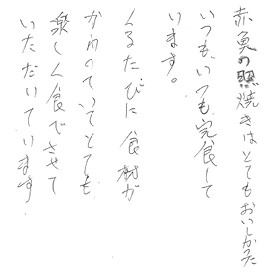 赤魚の照焼きはとてもおいしかった
いつもいつも完食して
います。
くるたびに食材が
かわっていてとても
楽しく食べさせて
いただいています